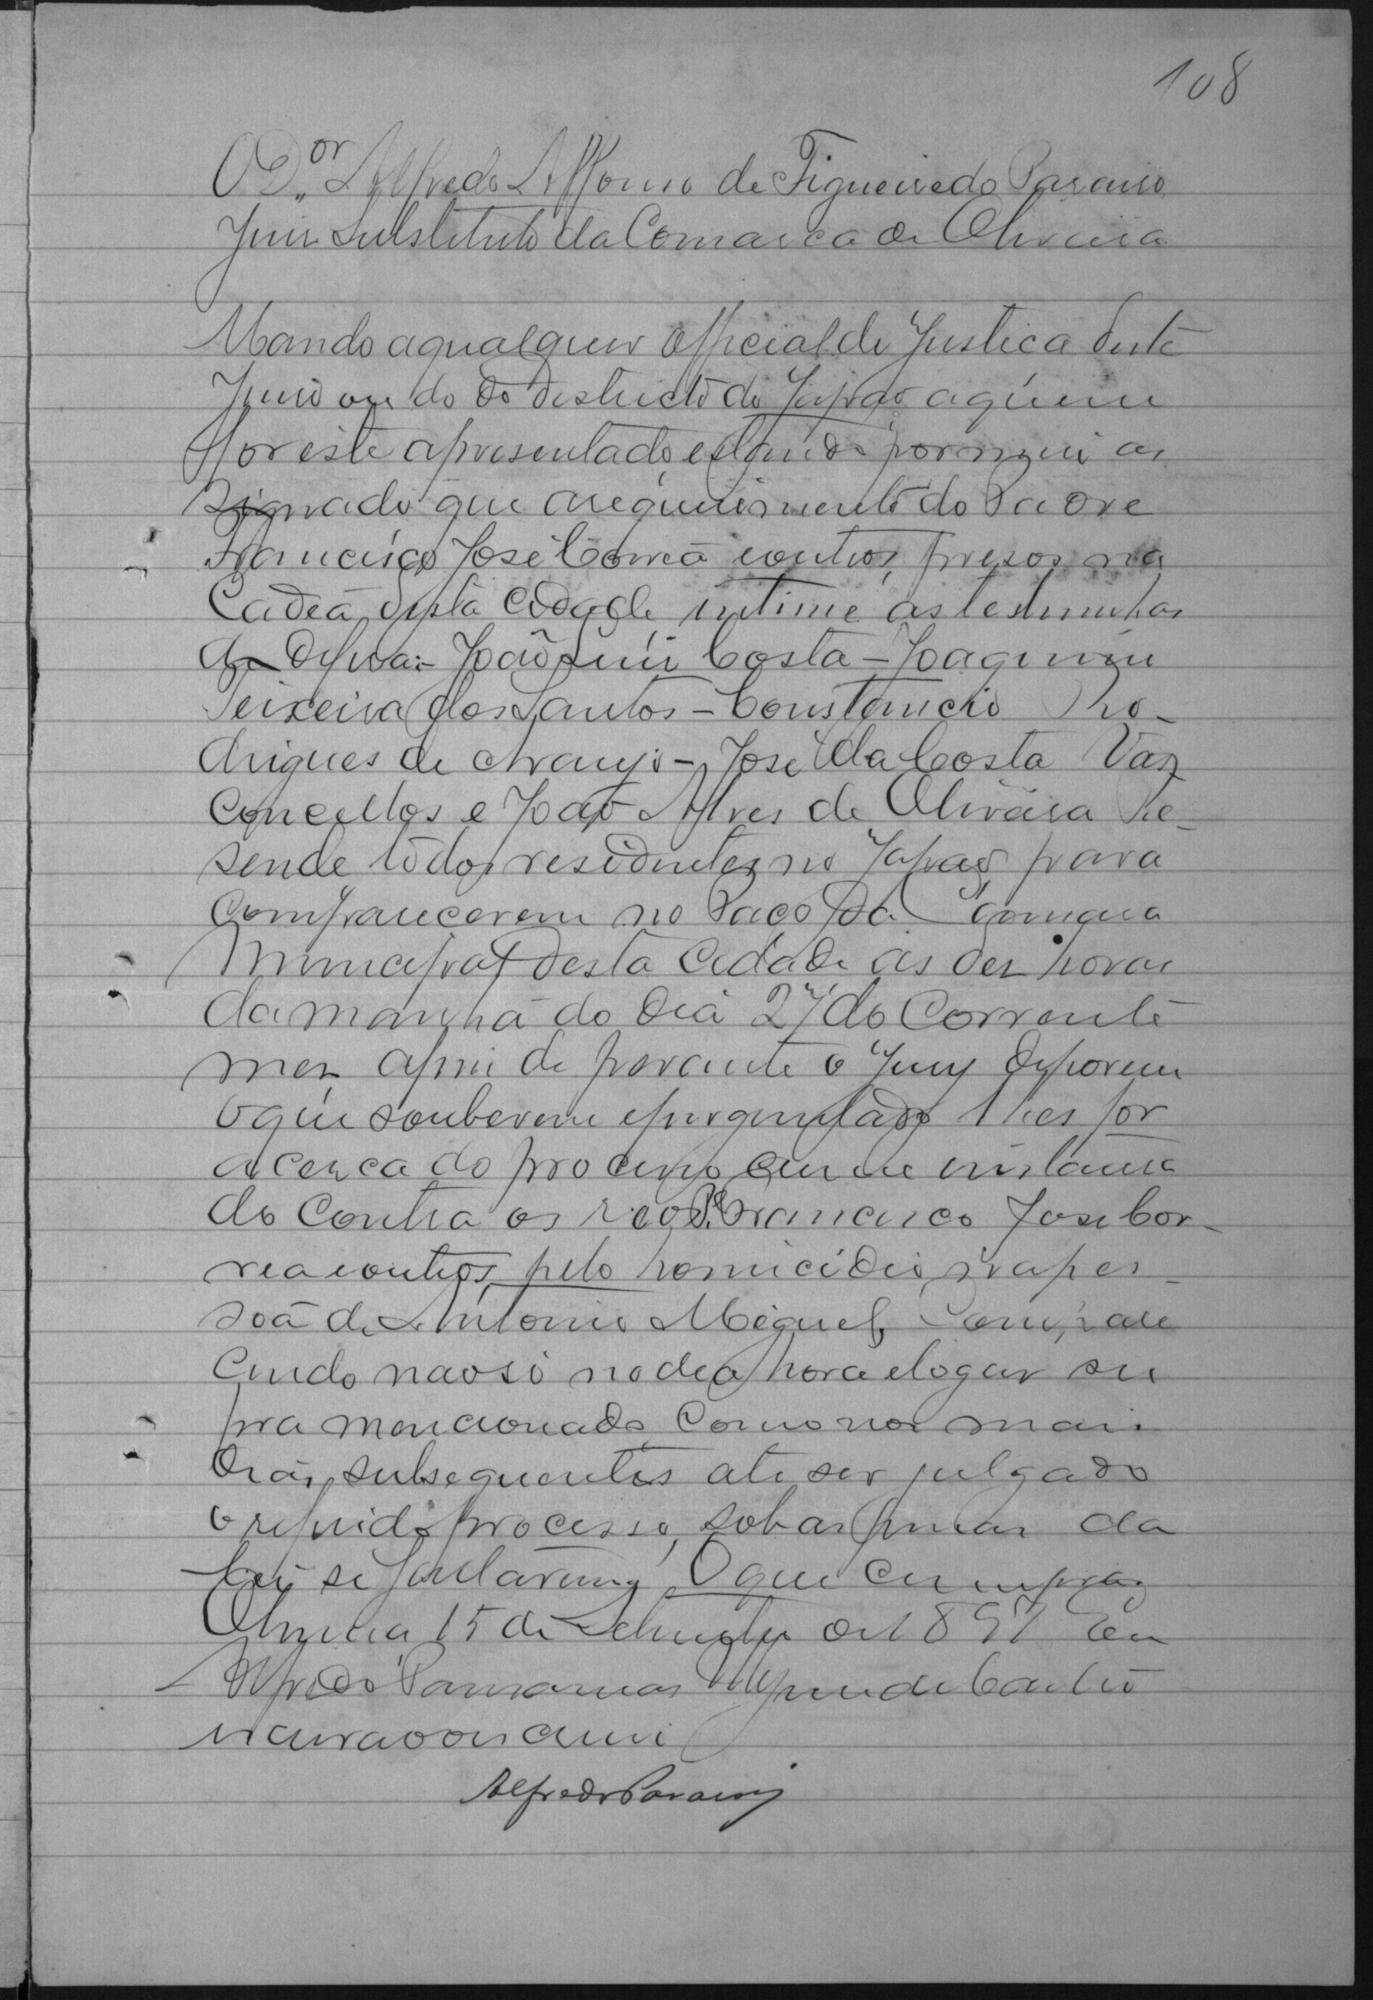 108
O D.or Alfredo Affonso de Figueiredo Paraiso
Juiz Substituto da Comarca de Oliveira
Mando a qualquer official de Justiça deste
Juizo ou do do districto do Japão a quem
for este apresentado e sendo por mim as
signado que a requerimento do Padre
Francisco José Correa e outros, presos na
Cadea desta cidade intime as testimunhas
de defesa:- João Luiz Costa - Joaquim
Teixeira dos Santos - Constancio Ro-
drigues de Araujo - José da Costa Vas
concellos e João Alves de Oliveira Re-
sende todos residentes no Japão para
comparecerem no Paço da Camara
Municipal desta Cidade as dez horas
da manhã do dia 27 do Corrente
mez afim de perante o Jury deporem
o que souberem e perguntado lhes for
acerca do processo crime instaura
do contra os reos P.e Francisco José Cor-
rea e outros, pelo homicidio na pes-
soa de Antonio Miguel, Compare
cendo não só no dia, hora e logar su
pra mencionado como nos mais
dias subsequentes até ser julgado
o refirido processo, sob as penas da
lei se faltarem, O que cumpra,
Oliveira 15 de Setembro de 1897 Eu
Alfredo de Castro
Alfredo Paraiso